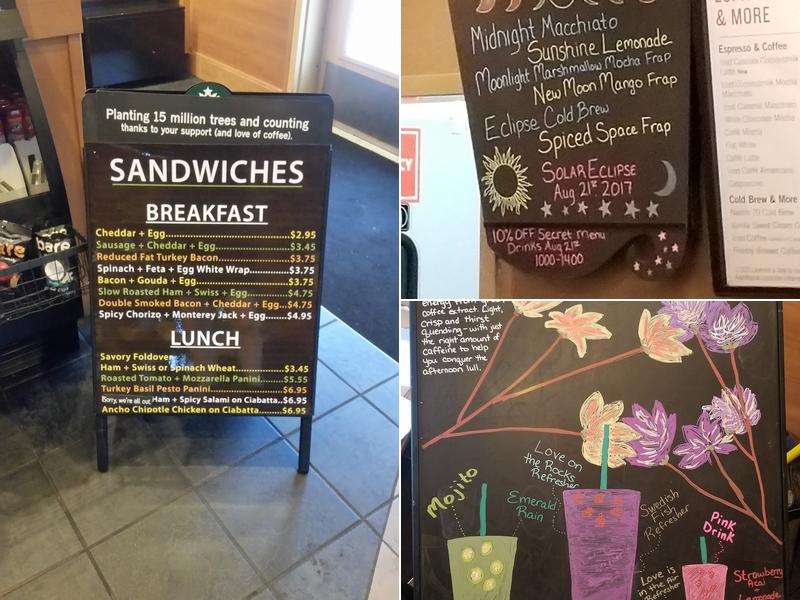 Planting 15 million trees and counting
thanks to your support (and love of coffee).
SANDWICHES
BREAKFAST
Cheddar + Egg $2.95
Sausage + Cheddar + Egg $3.45
Reduced Fat Turkey Bacon $3.75
Spinach + Feta + Egg White Wrap $3.75
Bacon + Gouda + Egg $3.75
Slow Roasted Ham + Swiss + Egg $4.75
Double Smoked Bacon + Cheddar + Egg $4.75
Spicy Chorizo + Monterey Jack + Egg $4.95
LUNCH
Savory Foldover
Ham + Swiss or Spinach Wheat $3.45
Roasted Tomato + Mozzarella Panini $5.55
Turkey Basil Pesto Panini $6.95
Sorry, we're all out Ham + Spicy Salami on Ciabatta $6.95
Ancho Chipotle Chicken on Ciabatta $6.95
bare
Midnight Macchiato
Sunshine Lemonade
Moonlight Marshmallow Mocha Frap
New Moon Mango Frap
Eclipse Cold Brew
Spiced Space Frap
Solar Eclipse
Aug 21st, 2017
10% OFF Secret Menu
Drinks Aug 21st
1000-1400
& MORE
Espresso & Coffee
Iced Caramel Macchiato
White Chocolate Mocha
Caffè Mocha
Flat White
Caffè Latte
Iced Caffè Americano
Cappuccino
Cold Brew & More
energy from
coffee extract. Light,
crisp and thirst
quenching - with just
the right amount of
caffeine to help
you conquer the
afternoon lull.
Mojito
Emerald
Rain
Love on
the Rocks
Refresher
Swedish
Fish
Refresher
Pink
Drink
Love is
in the Air
Refresher
Strawberry
Acai
+
Lemonade